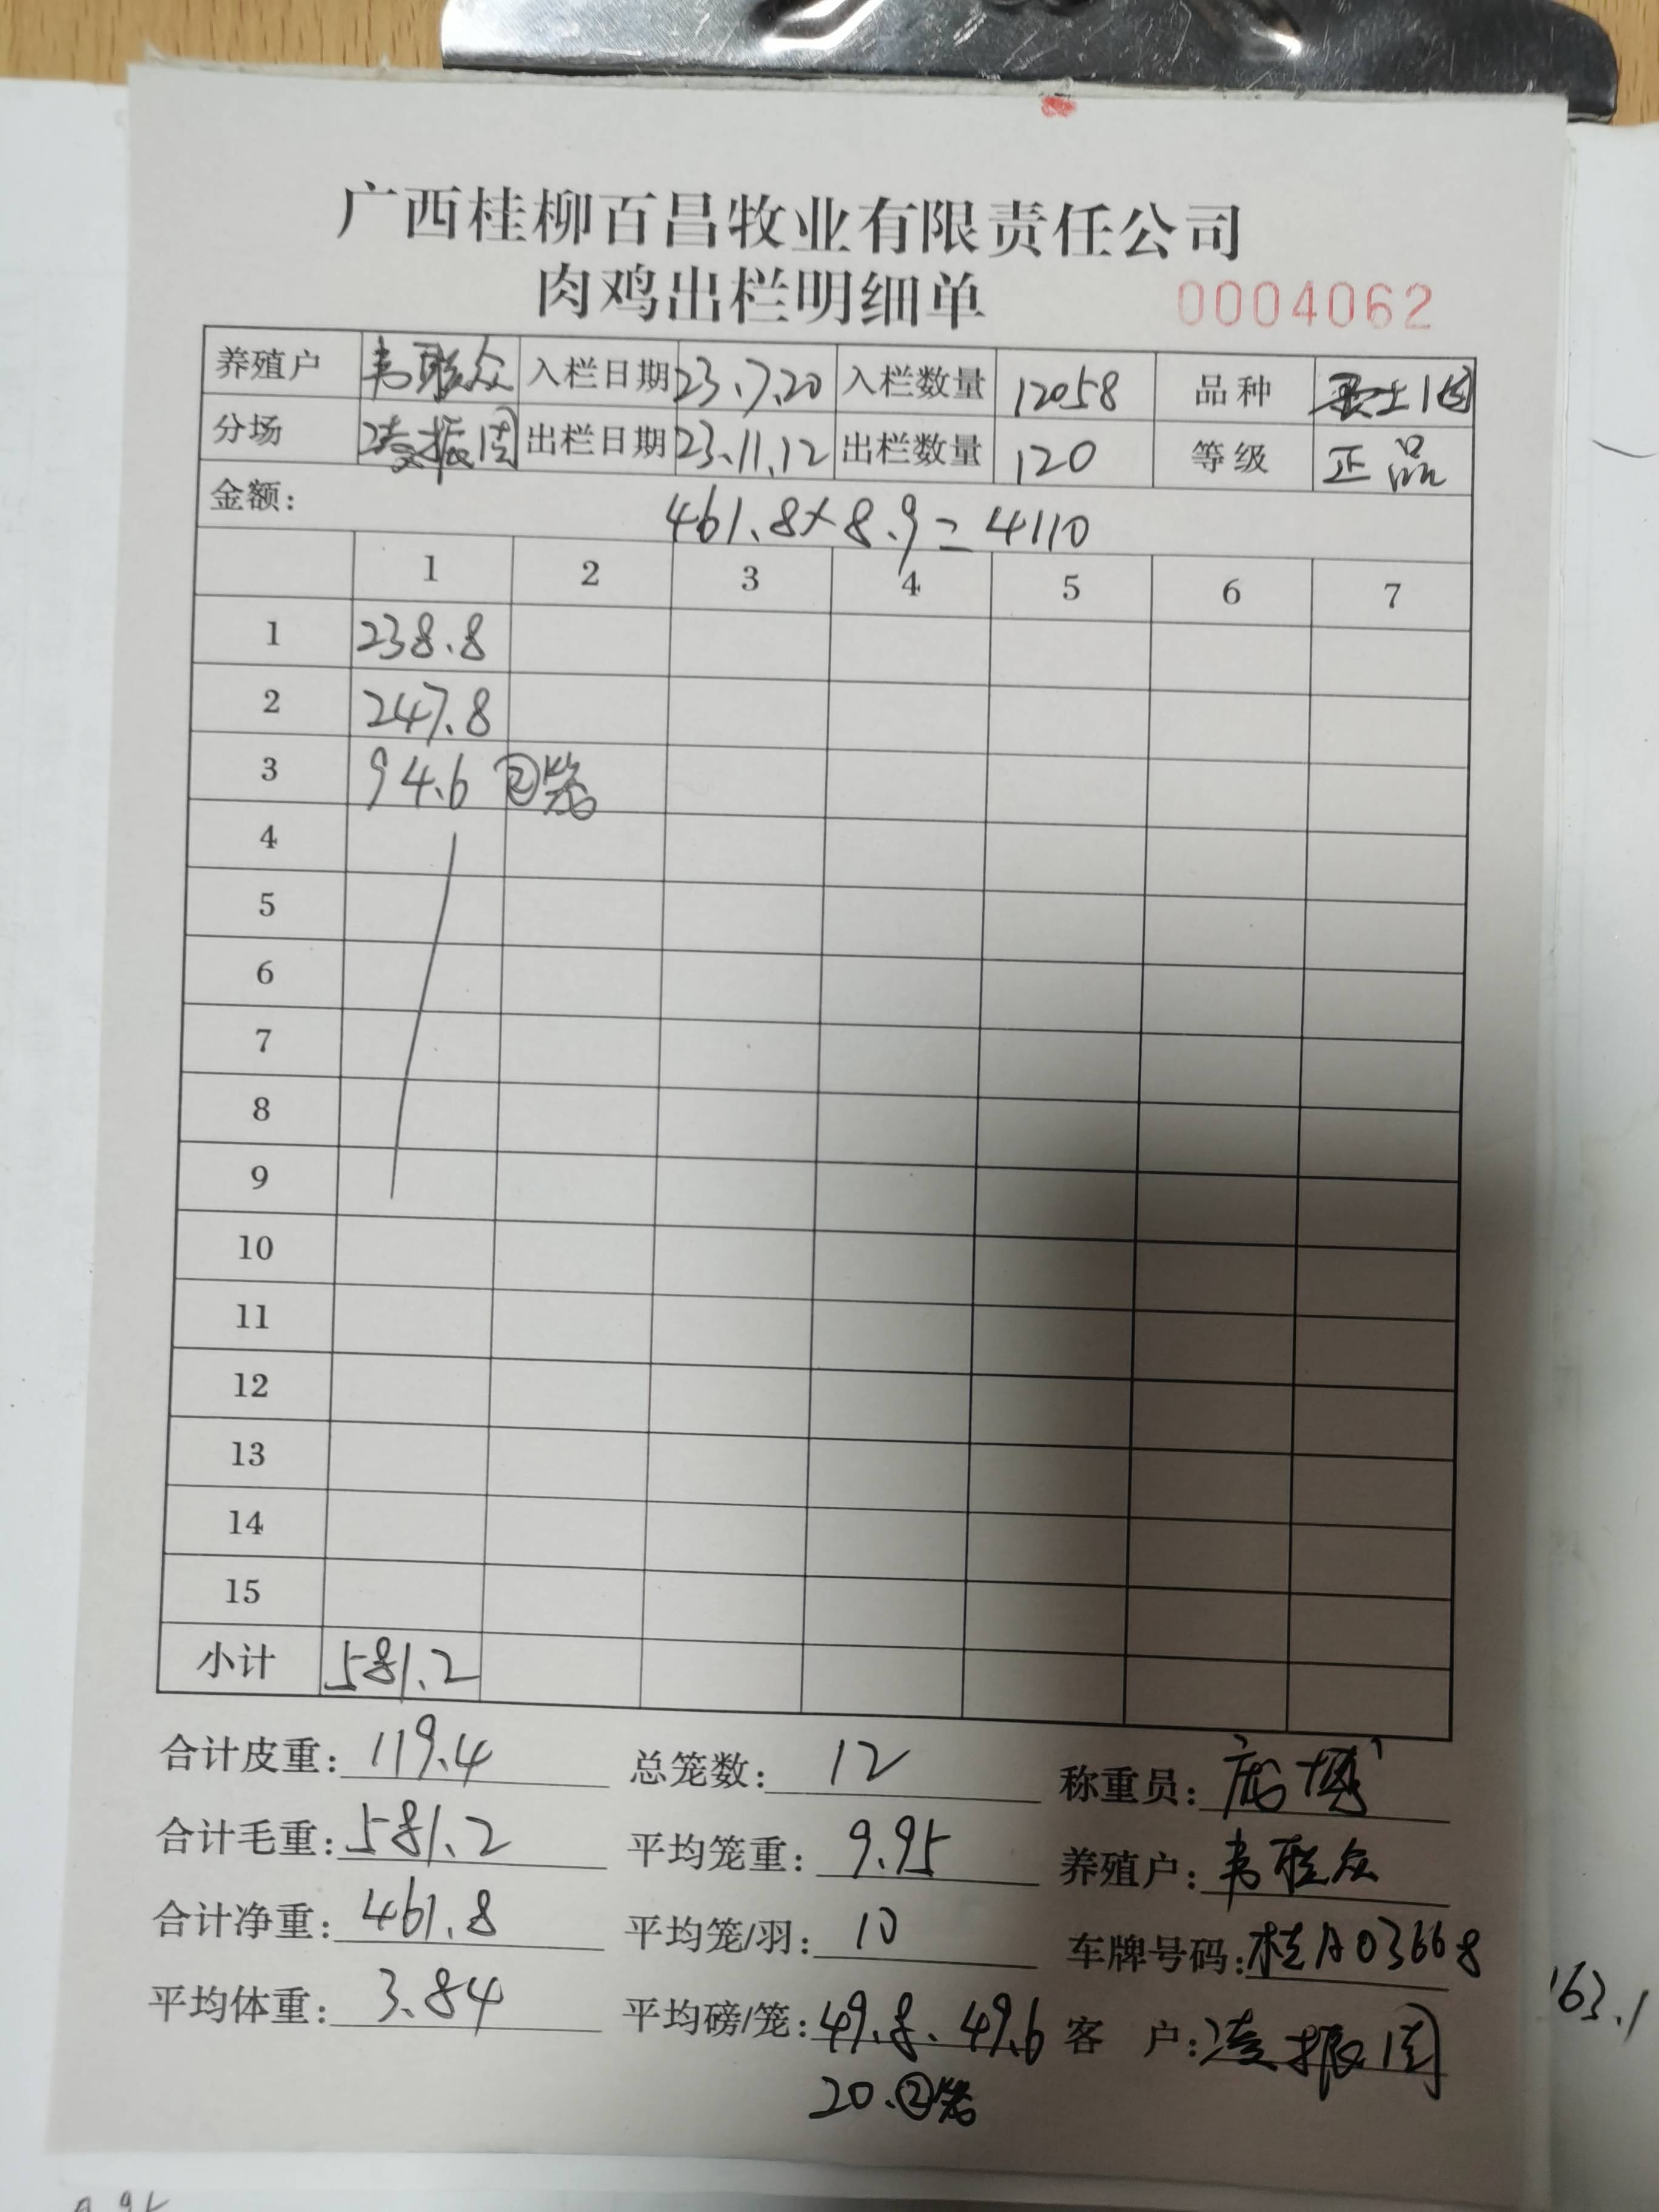 广西桂柳百昌牧业有限责任公司
肉鸡出栏明细单 0004062
养殖户 韦联众 入栏日期 23.7.20 入栏数量 12058 品种 土1
分场 凌振国 出栏日期 23.11.12 出栏数量 120 等级 正品
金额: 461.8×8.9=4110
1 2 3 4 5 6 7
1 238.8
2 247.8
3 94.6 ②笼
4
5
6
7
8
9
10
11
12
13
14
15
小计 581.2
合计皮重: 119.4 总笼数: 12 称重员:
合计毛重: 581.2 平均笼重: 9.95 养殖户: 韦联众
合计净重: 461.8 平均笼/羽: 10 车牌号码: 桂A03668
平均体重: 3.84 平均磅/笼: 49.8. 49.6 客 户: 凌振国
20.②笼
163.1